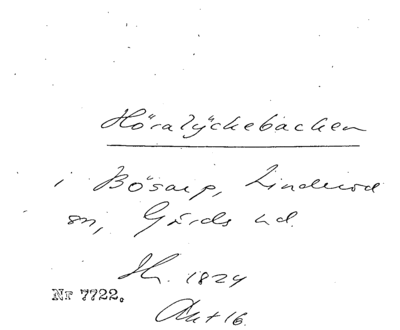 Höralyckebacken
i Bösarp, Linderöd
sn, Gärds hd.
Sk. 1824
Nr 7722.
Akt 16.